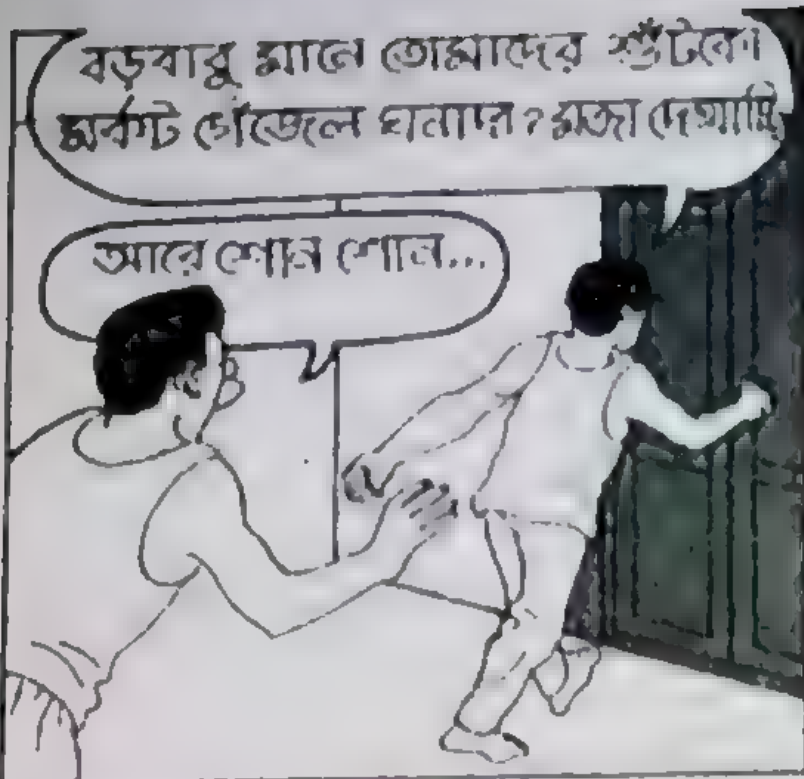 বড়বাবু মানে তোমাদের শুঁটকো
মর্কট গেঁজেল ঘনাদা? মজা দেখাচ্ছি
আরে শোন শোন...